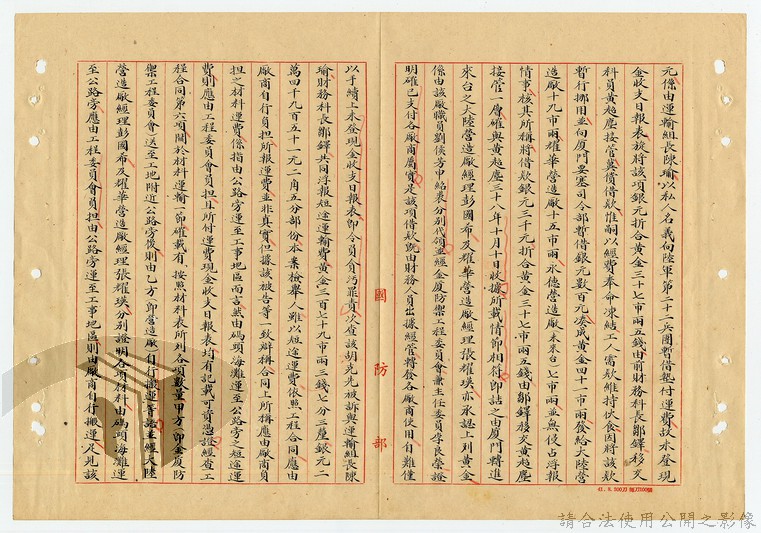 元係由運輸組長陳瑜以私人名義向陸軍第二十二兵團暫借墊付運費故未登現
金收支日報表旋將該項銀元折合黃金三十七市兩五錢由前財務科長鄒鐸移交
科員黃超塵接管冀償借欵惟嗣以經費奉命凍結工人需欵維持伙食因將該欵
暫行挪用並向厦門要塞司令部暫借銀元數百元湊成黃金四十一市兩發給大陸營
造廠十九市兩耀華營造廠十五市兩永德營造廠(未來台)七市兩並無侵占浮報
情事核其所稱將借欵銀元三千元折合黃金三十七市兩五錢由鄒鐸移交黃超塵
接管一層確與黃超塵三十八年十月十日收據所載情節相符即詰之由厦門轉進
來台之大陸營造廠經理彭國布及耀華營造廠經理張耀璞亦承認上列黃金
係由該廠職員劉侯芳申紹裘分別代領並經金厦防禦工程委員會兼主任委員李良榮證
明確已支付各廠商屬實是該項借欵既由財務人員出據經管轉發各廠商使用自難僅
國防部
以手續上未登現金收支日報表即令負貪污罪責次查該胡克先被訴與運輸組長陳
瑜財務科長鄒鐸共同浮報短途運輸費黃金三百七十九市兩三錢七分三厘銀元二
萬四千九百五十一元二角五分部份本案檢舉人雖以短途運費依照工程合同應由
廠商自行負担所報運費並非真實但據該被告等一致辯稱合同上所稱應由廠商負
担之材料運費係指由公路旁運至工事地區而言然由碼頭海灘運至公路旁之短途運
費則應由工程委員會員担且所付運費現金收支日報表均有記載可資憑證經查工
程合同第六項關於材料運輸一節確載有「按照材料表所列各項數量甲方(即金厦防
禦工程委員會)送至工地附近公路旁後則由乙方(即營造廠)自行搬運等語並經大陸
營造廠經理彭國布及耀華營造廠經理張耀璞分別證明各項材料由碼頭海灘運
至公路旁應由工程委員會員担由公路旁運至工事地區則由廠商自行搬運足見該
請合法使用公開之影像